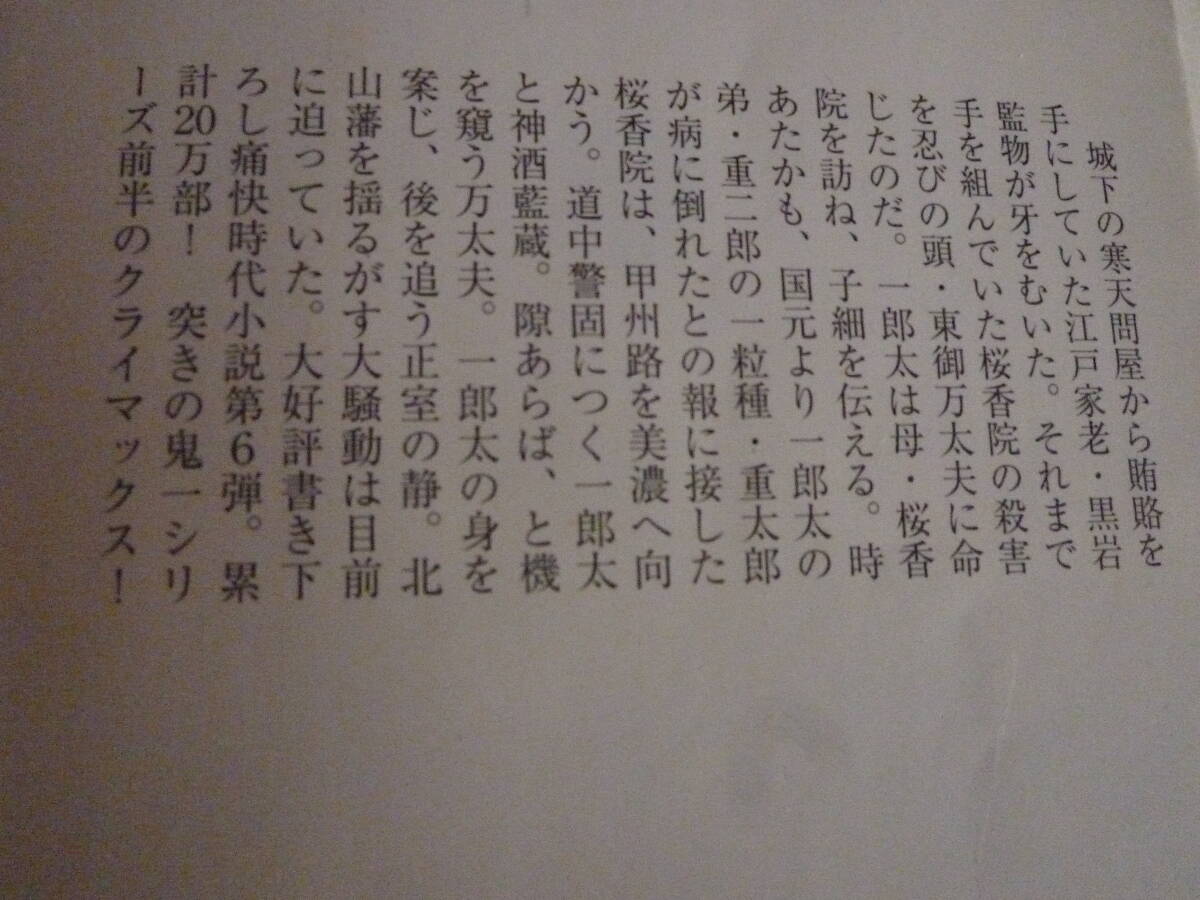 城下の寒天問屋から賄賂を
手にしていた江戸家老・黒岩
監物が牙をむいた。それまで
手を組んでいた桜香院の殺害
を忍びの頭・東御万太夫に命
じたのだ。一郎太は母・桜香
院を訪ね、子細を伝える。時
あたかも、国元より一郎太の
弟・重二郎の一粒種・重太郎
が病に倒れたとの報に接した
桜香院は、甲州路を美濃へ向
かう。道中警固につく一郎太
と神酒藍蔵。隙あらば、と機
を窺う万太夫。一郎太の身を
案じ、後を追う正室の静。北
山藩を揺るがす大騒動は目前
に迫っていた。大好評書き下
ろし痛快時代小説第6弾。累
計20万部！　突きの鬼一シリ
ーズ前半のクライマックス！